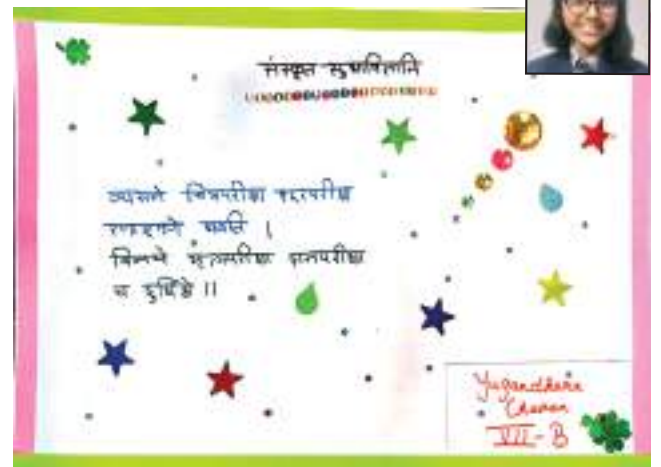 संस्कृत सुभाषितानि
व्यसने मित्रपरीक्षा शूरपरीक्षा
रणाङ्गणे भवति ।
विनये भृत्यपरीक्षा दानपरीक्षा
च दुर्भिक्षे ॥
Yugandhara
Chavan
VII - B